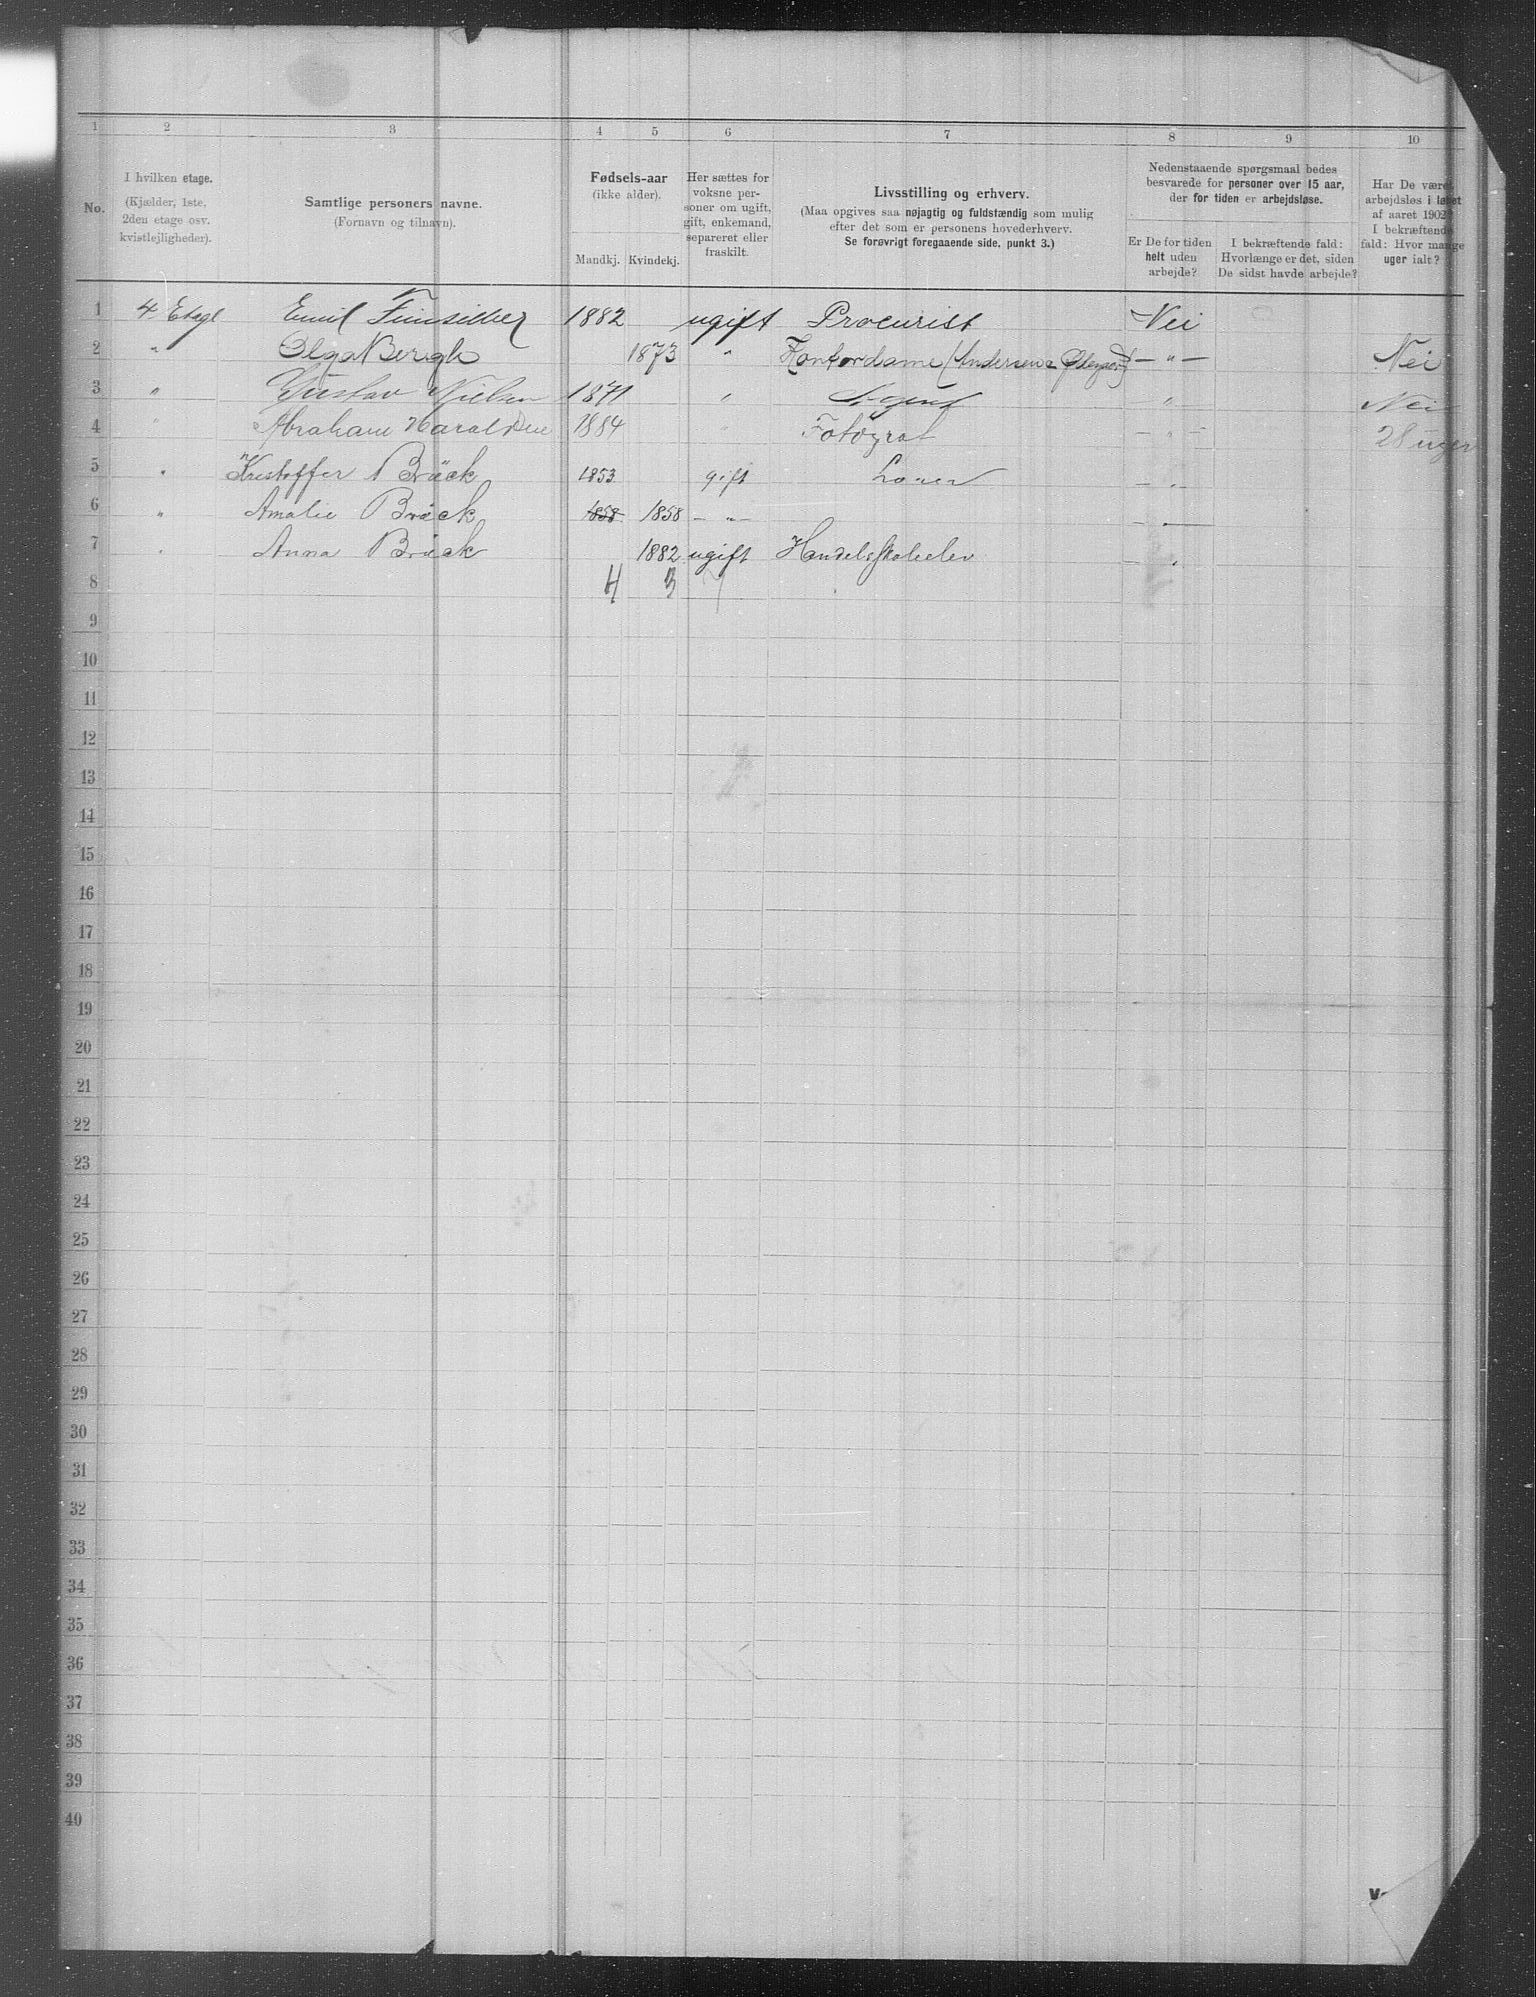 1 2 3 4 5 6 7 8 9 10
No.
I hvilken etage.
(Kjælder, 1ste,
2den etage osv.
kvistlejligheder).
Samtlige personers navne.
(Fornavn og tilnavn).
Fødsels-aar
(ikke alder).
Mandkj. Kvindekj.
Her sættes for
voksne per-
soner om ugift,
gift, enkemand,
separeret eller
fraskilt.
Livsstilling og erhverv.
(Maa opgives saa nøjagtig og fuldstændig som mulig
efter det som er personens hovederhverv.
Se forøvrigt foregaaende side, punkt 3.)
Nedenstaaende spørgsmaal bedes
besvarede for personer over 15 aar,
der for tiden er arbejdsløse.
Er De for tiden
helt uden
arbejde?
I bekræftende fald:
Hvorlænge er det, siden
De sidst havde arbejde?
Har De været
arbejdsløs i løbet
af aaret 1902?
I bekræftende
fald: Hvor mange
uger ialt?
1 4 Etage Emil 1882 ugift Procurist Nei
2 " Olga Bergh 1873 " Kontordame (Andersen — " — Nei
3 " Gustav Nielsen 1871 " Agent " Nei
4 " Abraham Haraldsen 1884 " Fotograf — " — 28 uger
5 " Kristoffer Bräck 1853 gift — " —
6 " Amalie Bräck 1858 1858 — " — — " —
7 " Anna Bräck 1882 ugift Handelsskoleelev — " —
8 4 3 7
9
10
11
12
13
14
15
16
17
18
19
20
21
22
23
24
25
26
27
28
29
30
31
32
33
34
35
36
37
38
39
40